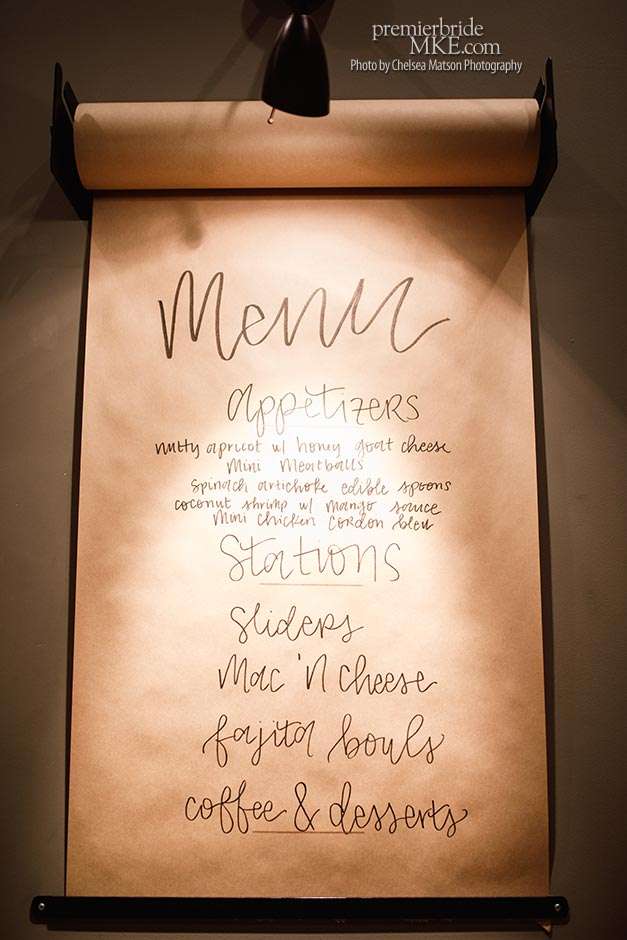 premierbride
MKE.com
Photo by Chelsea Matson Photography
Menu
appetizers
nutty apricot w/ honey goat cheese
mini meatballs
spinach artichoke edible spoons
coconut shrimp w/ mango sauce
mini chicken cordon bleu
stations
sliders
mac 'n cheese
fajita bowls
coffee & desserts